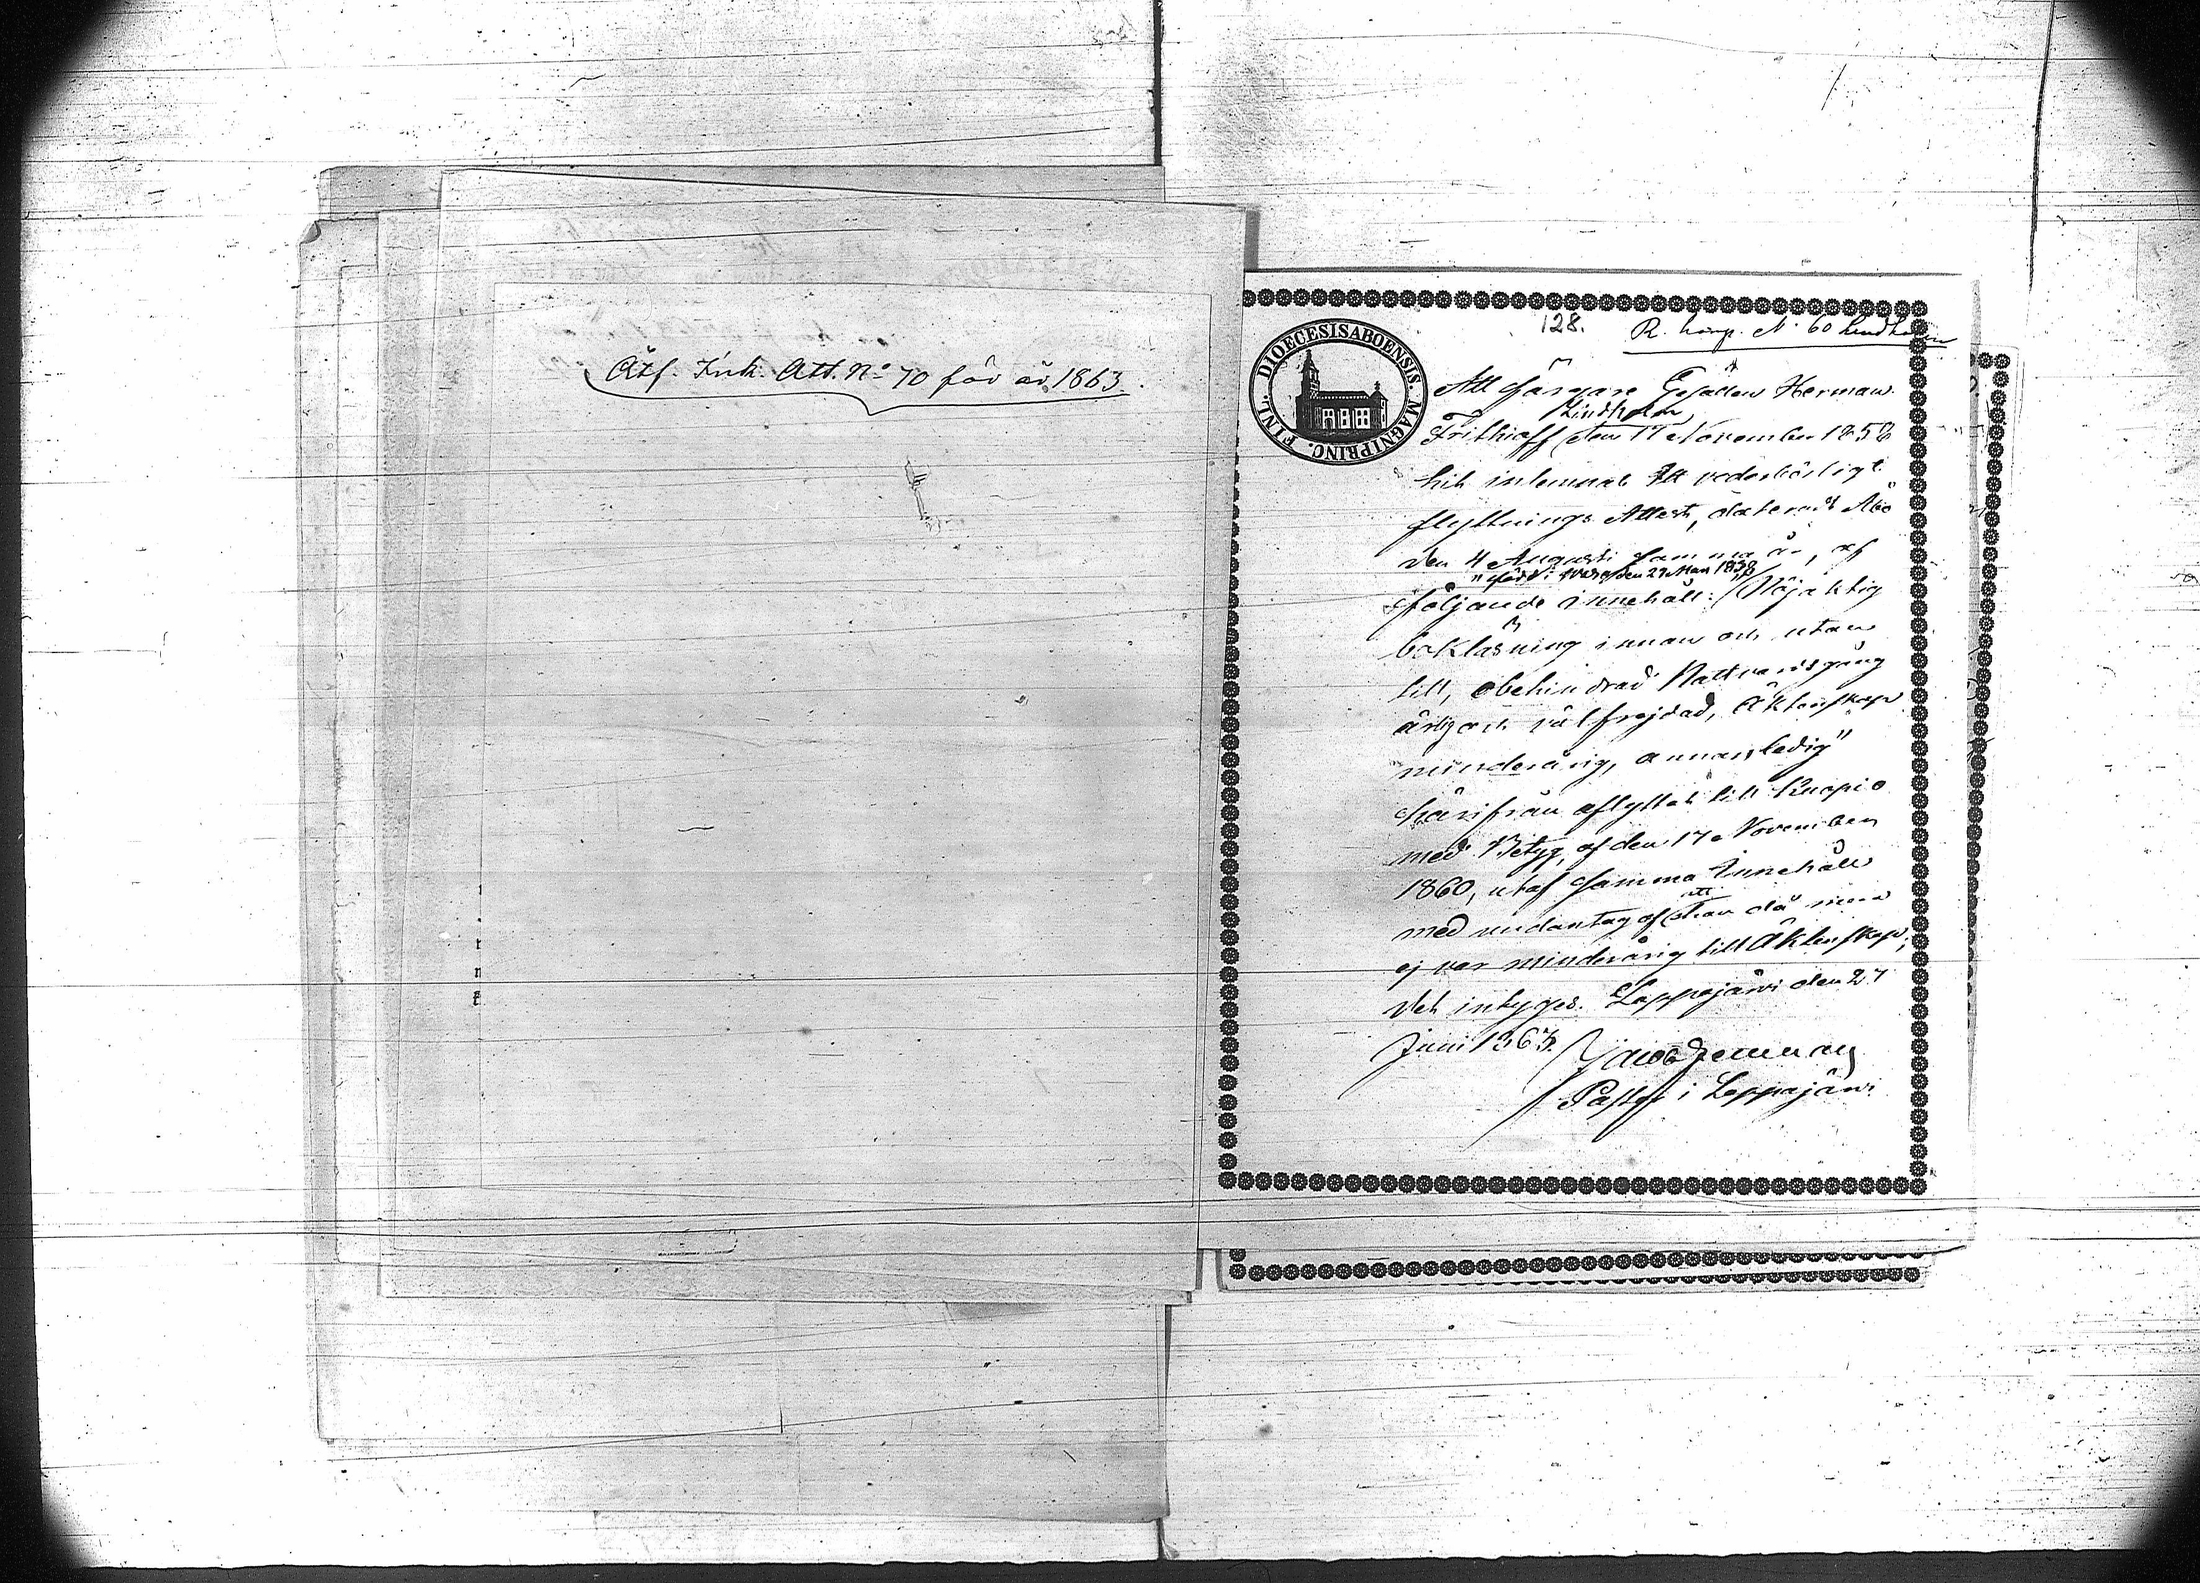 Åtf. Ink. Att. No 70 för år 1863.
128.
R. No 60 Lindholm
DIOECESIS ABOENSIS. MAGNI PRINC. FINL.
Att Färgare Gesällen Herman
Lindholm
Frithioff den 17 November 1858
hit inlemnat Ett vederbörligt
flyttnings Attest, dateradt Åbo
den 4 Augusti samma år, af
"född i den 29 Maii 1838
följande innehåll: Nöjaktig
bokläsning innan och utan
till, obehindrad Nattvardsgång
ärlig och välfrejdad, Äktenskap
minderårig, annars ledig"
härifrån aflyttat till Kuopio
med Betyg, af den 17 November
1860, utaf samma Innehåll
att
med undantag af han då mera
ej var minderårig till Äktenskap,
det intygas. Lappajärvi den 27
Juni 1863.
Pastor i Lappajärvi.